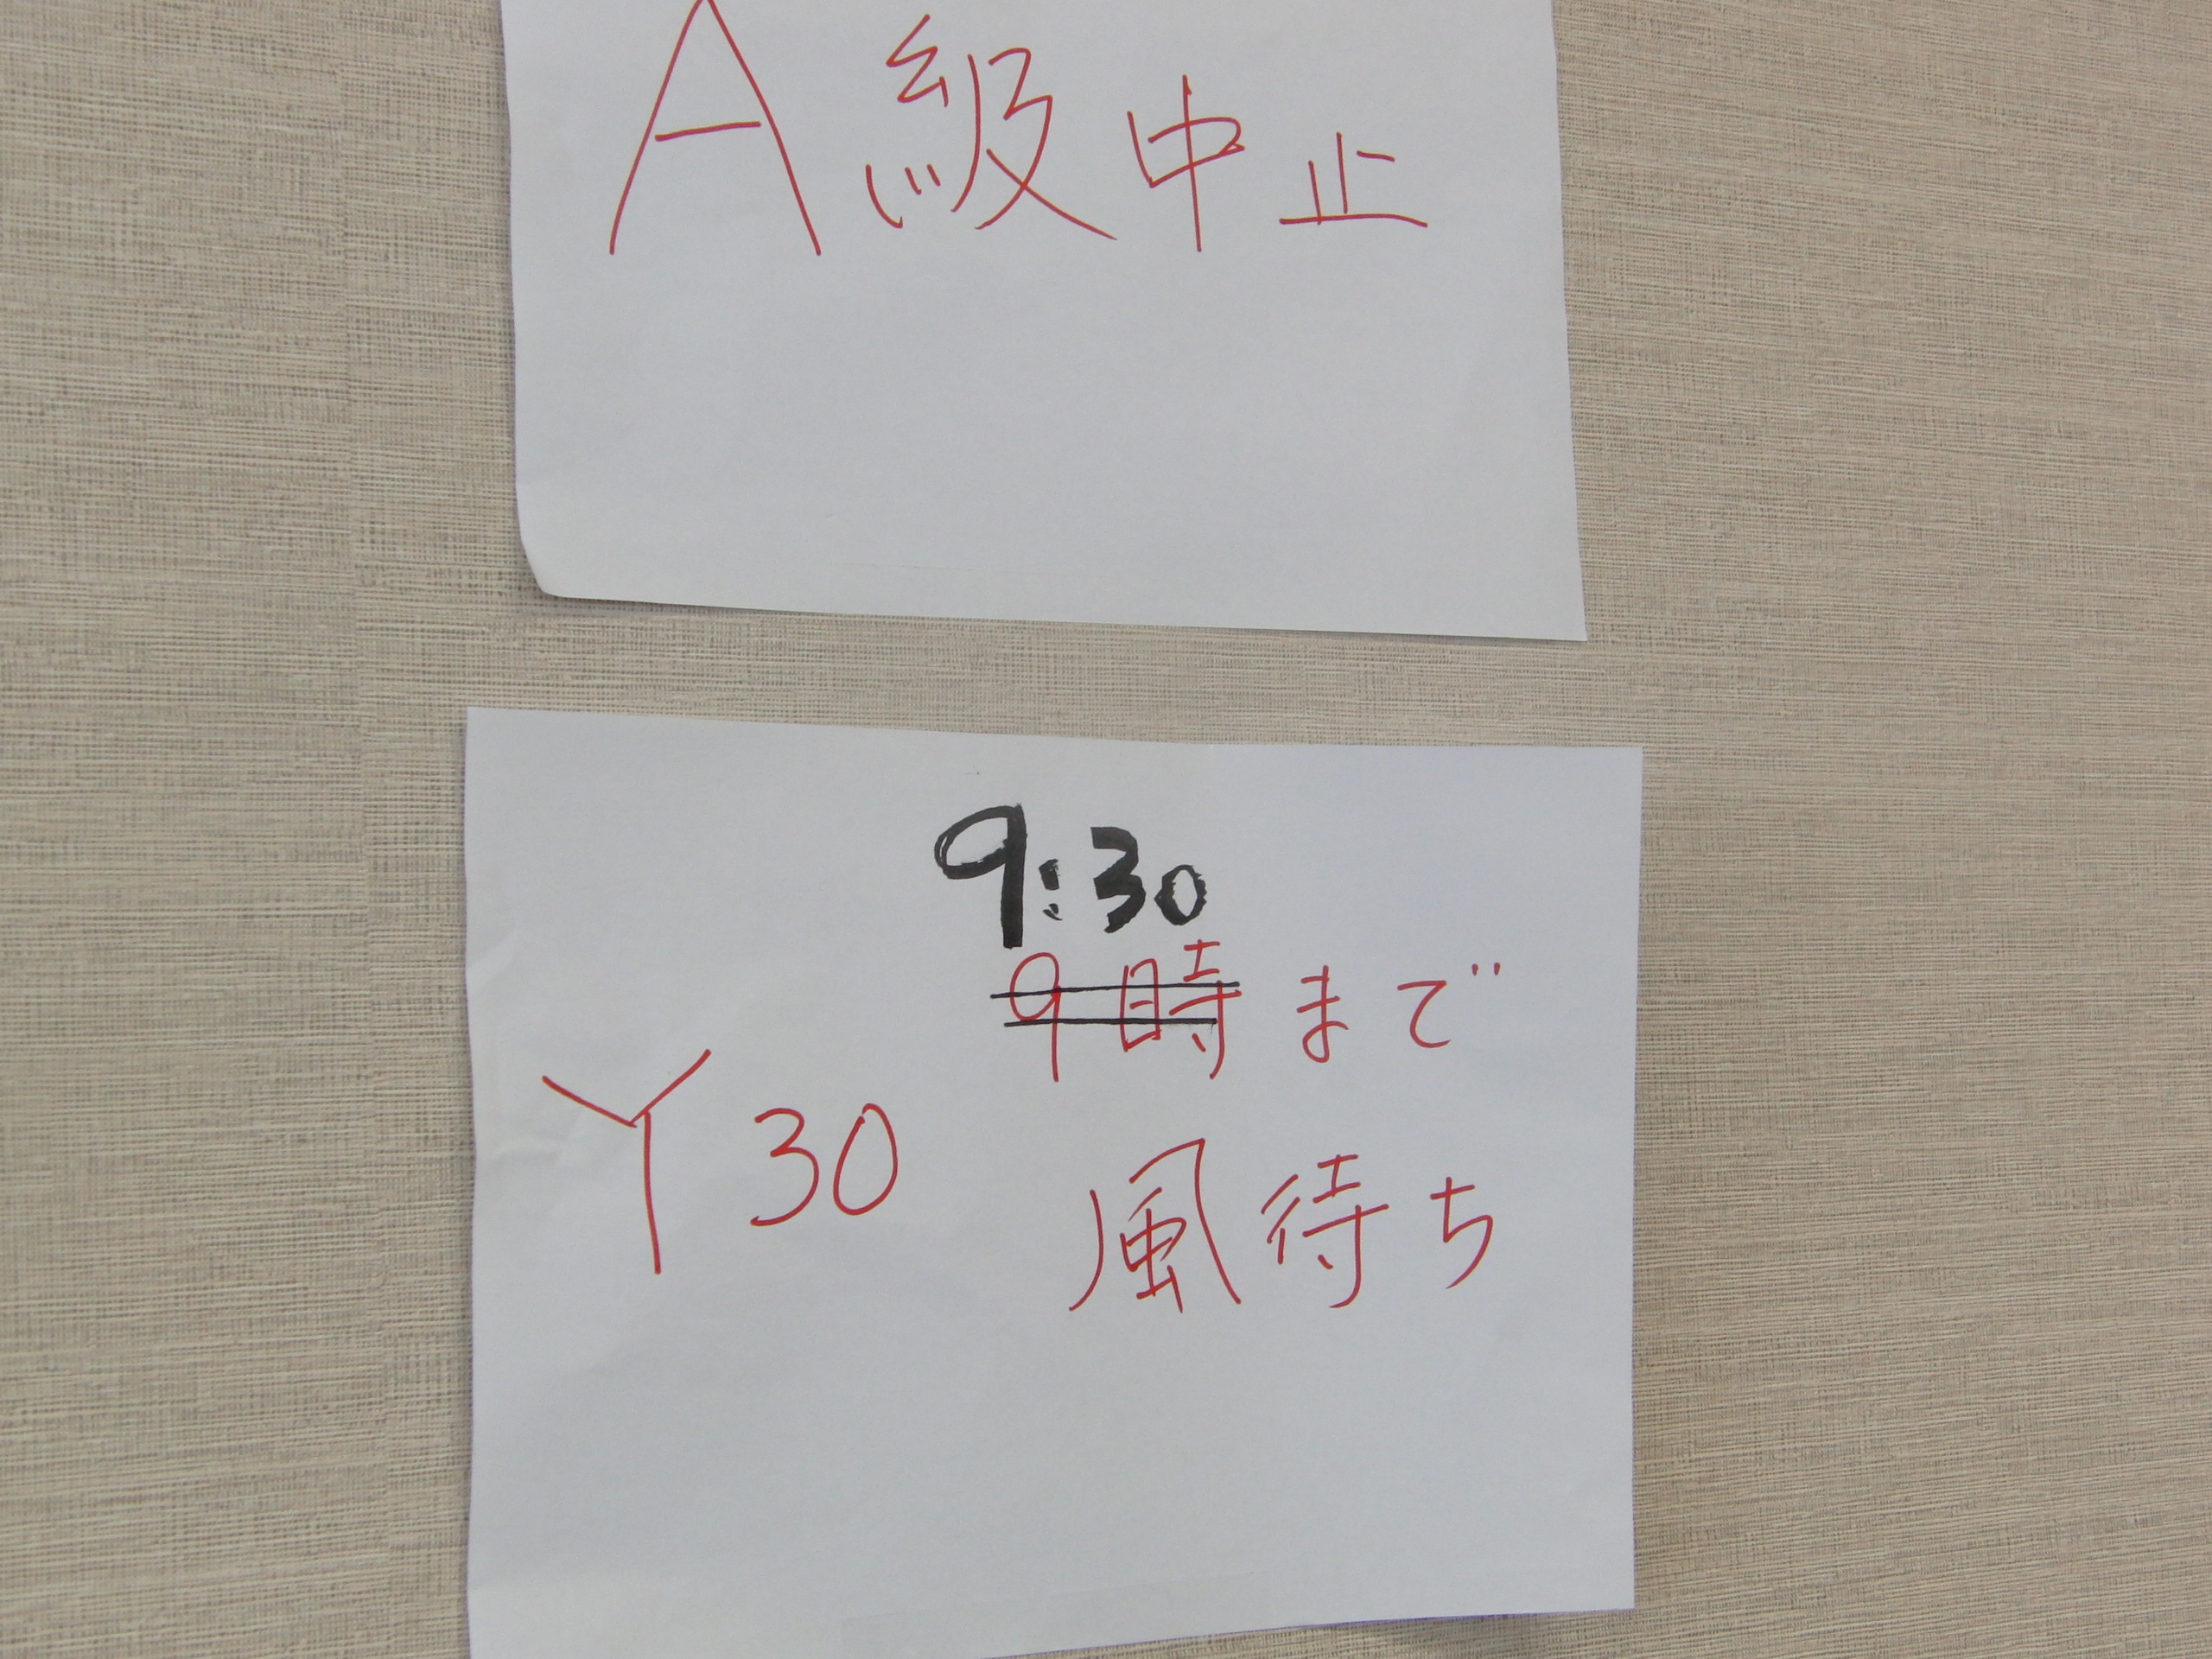 A級中止
9:30
9時まで
Y30
風待ち